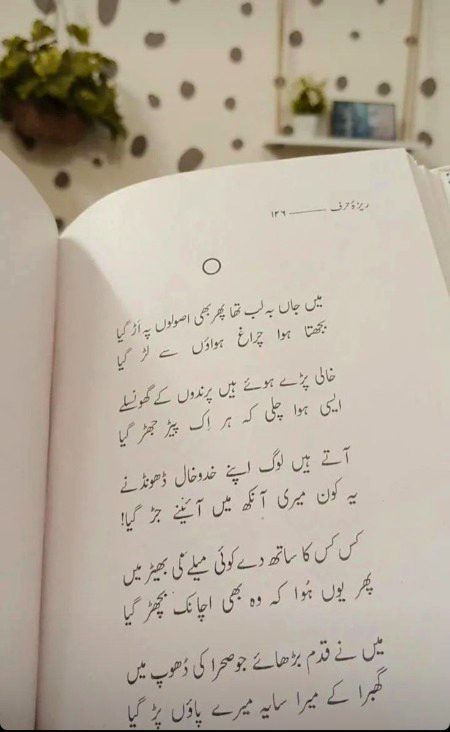 ریزۂ حرف ——— ۱۲۶
میں جاں بہ لب تھا پھر بھی اصولوں پہ اَڑ گیا
بجھتا ہوا چراغ ہواؤں سے لڑ گیا
خالی پڑے ہوئے ہیں پرندوں کے گھونسلے
ایسی ہوا چلی کہ ہر اِک پیڑ جھڑ گیا
آتے ہیں لوگ اپنے خدوخال ڈھونڈنے
یہ کون میری آنکھ میں آئینے جڑ گیا!
کس کس کا ساتھ دے کوئی میلے کی بھیڑ میں
پھر یوں ہُوا کہ وہ بھی اچانک بچھڑ گیا
میں نے قدم بڑھائے جو صحرا کی دُھوپ میں
گھبرا کے میرا سایہ میرے پاؤں پڑ گیا